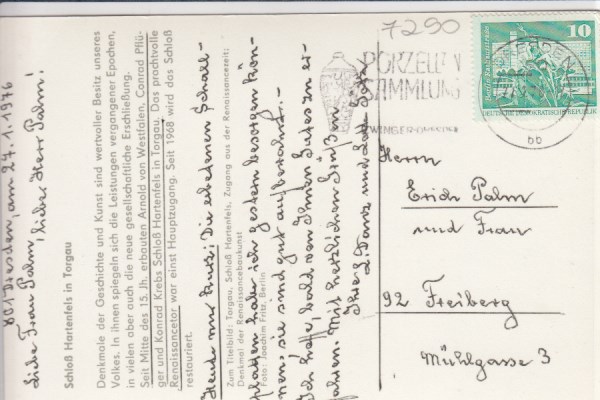 801 Dresden, am 27.1.1976
Liebe Frau Palm, lieber Herr Palm!
Schloß Hartenfels in Torgau
Denkmale der Geschichte und Kunst sind wertvoller Besitz unseres
Volkes. In ihnen spiegeln sich die Leistungen vergangener Epochen,
in vielen aber auch die neue gesellschaftliche Erschließung.
Seit Mitte des 15. Jh. erbauten Arnold von Westfalen, Conrad Pflü-
ger und Konrad Krebs Schloß Hartenfels in Torgau. Das prachtvolle
Renaissancetor war einst Hauptzugang. Seit 1968 wird das Schloß
restauriert.
Heute nur kurz: Die erbetenen Schall-
Zum Titelbild: Torgau, Schloß Hartenfels, Zugang aus der Renaissancezeit:
Denkmal der Renaissancebaukunst
Foto: Joachim Fritz, Berlin
platten habe ich gestern besorgen kön-
nen, sie sind gut aufbewahrt.-
Ich hoffe, bald von Ihnen Gutes zu er-
fahren. Mit herzlichen Grüßen
Ihre L. Danz und Lotte
7290
PORZELLAN
SAMMLUNG
ZWINGER
DRESDEN
bb
10
DEUTSCHE DEMOKRATISCHE REPUBLIK
Herrn
Erich Palm
und Frau
92 Freiberg
Mühlgasse 3